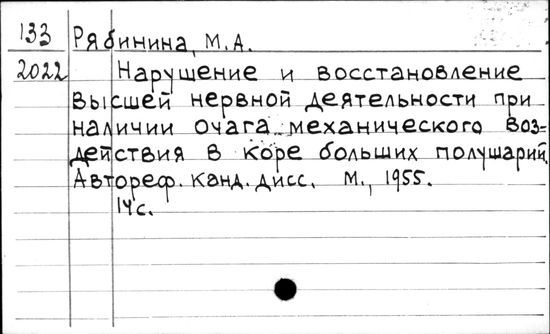 133 Рябинина, М.А.
2022 Нарушение и восстановление
высшей нервной деятельности при
наличии очага механического воз=
действия в коре больших полушарий.
Автореф. канд. дисс. М., 1955.
14с.